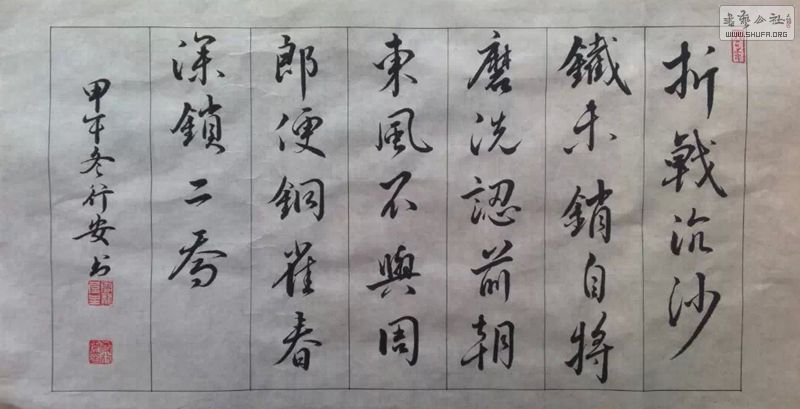 折戟沉沙
鐵未銷自將
磨洗認前朝
東風不與周
郎便銅雀春
深鎖二喬
甲午冬行安书
書藝公社
WWW.SHUFA.ORG